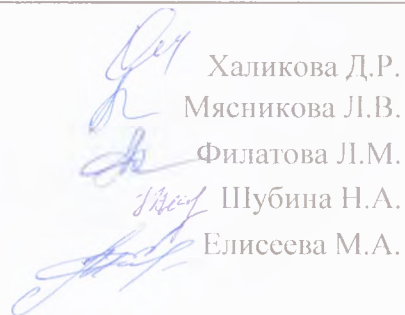 Халикова Д.Р.
Мясникова Л.В.
Филатова Л.М.
Шубина Н.А.
Елисеева М.А.